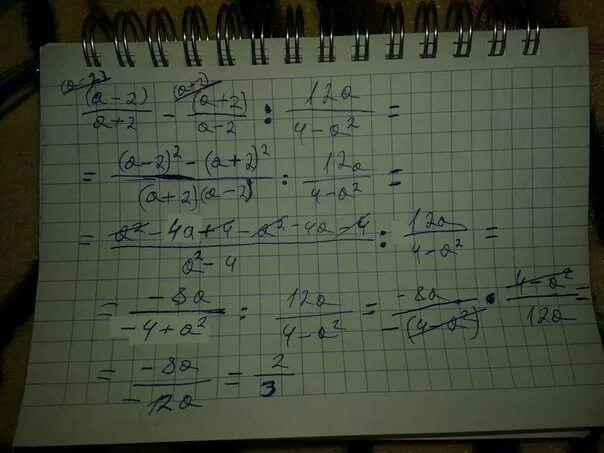 (a-2) (a+2)
(a-2)/(a+2) - (a+2)/(a-2) : 12a/(4-a²) =
= ((a-2)² - (a+2)²)/((a+2)(a-2)) : 12a/(4-a²) =
= (a² - 4a + 4 - a² - 4a - 4)/(a² - 4) : 12a/(4-a²) =
= -8a/(-4+a²) : 12a/(4-a²) = -8a/(-(4-a²)) · (4-a²)/12a =
= -8a/(-12a) = 2/3